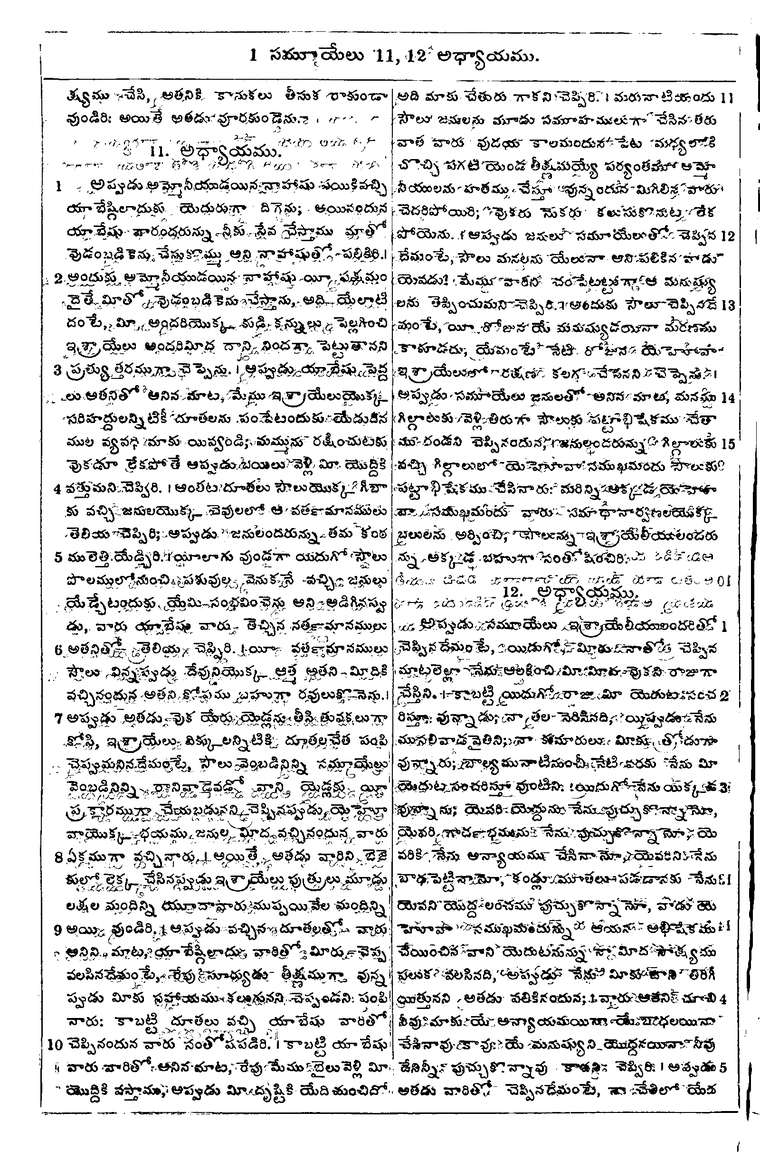 1 సమూయేలు 11, 12 అధ్యాయము.
త్వము చేసి, అతనికి కానుకలు తీసుక రాకుండా
వుండిరి: అయితే అతడు వూరకుండెను.
11. అధ్యాయము.
1 అప్పుడు అమ్మోనీయుడయిన నాహాషు పయికివచ్చి
యాబేష్గిలాదుకు యెదురుగా దిగెను; అయినందున
యాబేషు వారందరున్ను నీకు సేవ చేస్తాము మాతో
వుడంబడికెను చేసుకొమ్ము అని నాహాషుతో పలికిరి.
2 అందుకు అమ్మోనీయుడయిన నాహాషు యీ పక్షమం
దైతే మీతో వుడంబడికెను చేస్తాను, అది యేలాటి
దంటే, మీ అందరియొక్క కుడి కన్నులు పెల్లగించి
ఇశ్రాయేలు అందరిమీద దాన్ని నిందగా పెట్టుతానని
3 ప్రత్యుత్తరముగా చెప్పెను. । అప్పుడు యాబేషు పెద్ద
లు అతనితో అనిన మాట, మేము ఇశ్రాయేలుయొక్క
సరిహద్దులన్నిటికి దూతలను పంపేటందుకు యేడుదిన
ముల వ్యవధి మాకు యివ్వండి; మమ్మును రక్షించుటకు
వొకడూ లేకపోతే అప్పుడు బయిలు వెళ్లి మీ యొద్దికి
4 వత్తుమని చెప్పిరి. । అంతట దూతలు సౌలుయొక్క గిబా
కు వచ్చి జనులయొక్క చెవులలో ఆ వర్తమానములు
తెలియ చెప్పిరి; అప్పుడు జనులందరున్ను తమ కంఠ
5 ములెత్తి యేడ్చిరి. । యీలాగు వుండగా యిదుగో సౌలు
పొలములోనుంచి పశువుల వెనుకనే వచ్చి జనులు
యేడ్చేటందుకు యేమి సంభవించెను అని అడిగినప్పు
డు, వారు యాబేషు వారు తెచ్చిన వర్తమానములు
6 అతనితో తెలియ చెప్పిరి. । యీ వర్తమానములు
సౌలు విన్నప్పుడు దేవునియొక్క ఆత్మ అతని మీదికి
వచ్చినందున అతని కోపము బహుగా రవులుకొనెను.
7 అప్పుడు అతడు వొక యేరు యెడ్లను తీసి తునకలుగా
కోసి, ఇశ్రాయేలు దిక్కులన్నిటికి దూతలచేత పంపి
చెప్పుమనినదేమంటే, సౌలు వెంబడినిన్ని సమూయేలు
వెంబడినిన్ని రానివాడెవడో వాని యెడ్లకు యీ
ప్రకారముగా చేయబడునని చెప్పినప్పుడు, యెహో
వాయొక్క భయము జనుల మీద వచ్చినందున వారు
8 ఏకముగా వచ్చినారు. । అయితే అతడు వారిని బెజె
కులో లెక్క చేసినప్పుడు ఇశ్రాయేలు పుత్రులు మూడు
లక్షల మందిన్ని యూదావారు ముప్పయివేల మందిన్ని
9 అయి వుండిరి. । అప్పుడు వచ్చిన దూతలతో వారు
అనిన మాట, యాబేష్గిలాదు వారితో మీరు చెప్ప
వలసినదేమంటే, రేపు సూర్యుడు తీక్ష్ణముగా వున్న
ప్పుడు మీకు సహాయము కలుగునని చెప్పండని పంపి
నారు: కాబట్టి దూతలు వచ్చి యాబేషు వారితో
10 చెప్పినందున వారు సంతోషపడిరి. । కాబట్టి యాబేషు
వారు వారితో అనిన మాట, రేపు మేము బైలువెళ్లి మీ
యొద్దికి వస్తాము; అప్పుడు మీ దృష్టికి యేది మంచిదో
అది మాకు చేతురు గాకని చెప్పిరి. । మరునాటియందు 11
సౌలు జనులను మూడు సమూహములుగా చేసిన తరు
వాత వారు వుదయ కాలమందున పేట మధ్యలోకి
చొచ్చి పగటి యెండ తీక్ష్ణమయ్యే పర్యంతము అమ్మో
నీయులను హతము చేస్తూ వున్నందున మిగిలిన వారు
చెదరిపోయిరి; వొకరు మెకరు కలుసుకొనుట లేక
పోయెను. । అప్పుడు జనులు సమూయేలుతో చెప్పిన 12
దేమంటే, సౌలు మనలను యేలునా అని పలికిన వాడు
యెవడు? మేము వారిని చంపేటట్టుగా ఆ మనుష్యు
లను తెప్పించుమని చెప్పిరి. । అందుకు సౌలు చెప్పినదే 13
మంటే, యీ రోజున యే మనుష్యుడయినా మరణము
కాకూడదు; యేమంటే నేటి రోజున యెహోవా
ఇశ్రాయేలులో రక్షణ కలగ చేసెనని చెప్పెను.
అప్పుడు సమూయేలు జనులతో అనిన మాట, మనము 14
గిల్గాలుకు వెళ్లి తిరుగా సౌలుకు పట్టాభిషేకము చేతా
ము రండని చెప్పినందున, జనులందరున్ను గిల్గాలుకు 15
వచ్చి గిల్గాలులో యెహోవా సముఖమందు సౌలుకు
పట్టాభిషేకము చేసినారు: మరిన్ని అక్కడ యెహో
వా సముఖమందు వారు సమాధానార్పణలయొక్క
బలులను అర్పించి, సౌలున్ను ఇశ్రాయేలీయులందరు
న్ను అక్కడ బహుగా సంతోషించిరి.
12. అధ్యాయము.
అప్పుడు సమూయేలు ఇశ్రాయేలీయులందరితో 1
చెప్పినదేమంటే, యిదుగో మీరు నాతో చెప్పిన
మాటలెల్లా నేను ఆలకించి మీ మీద వొకని రాజుగా
చేస్తిని. । కాబట్టి యిదుగో రాజు మీ యెదుట సంచ 2
రిస్తూ వున్నాడు; నా తల నెరిసినది, యిప్పుడు నేను
ముసలివాడవైతిని; నా కుమారులు మీకు తోడుగా
వున్నారు; బాల్యమునాటినుంచి నేటి వరకు నేను మీ
యెదుట సంచరిస్తూ వుంటిని. । యిదుగో నేను యిక్కడ 3
వున్నాను; యెవరి యెద్దును నేను పుచ్చుకొన్నానో,
యెవరి గార్దభమును నేను పుచ్చుకొన్నానో, యె
వరికి నేను అన్యాయము చేసినానో, యెవరిని నేను
బాధపెట్టినానో, కండ్లు మూతలు పడడానకు నేను
యెవని యొద్ద లంచము పుచ్చుకొన్నానో, వాడు యె
హోవా సముఖమందున్ను ఆయన అభిషేకము
చేయించిన వాని యెదుటనున్ను నా మీద సాక్ష్యము
పలుక వలసినది, అప్పుడు నేను మీకు దాని తిరిగీ
యిత్తునని అతడు పలికినందున; । వారు అతనిని చూచి 4
నీవు మాకు యే అన్యాయమయినా యే బాధలయినా
చేశినావు కావు; యే మనుష్యుని యొద్దనయినా నీవు
దేనిన్నీ పుచ్చుకొన్నావు కావని చెప్పిరి. । అప్పుడు 5
అతడు వారితో చెప్పినదేమంటే, నా చేతిలో యేద